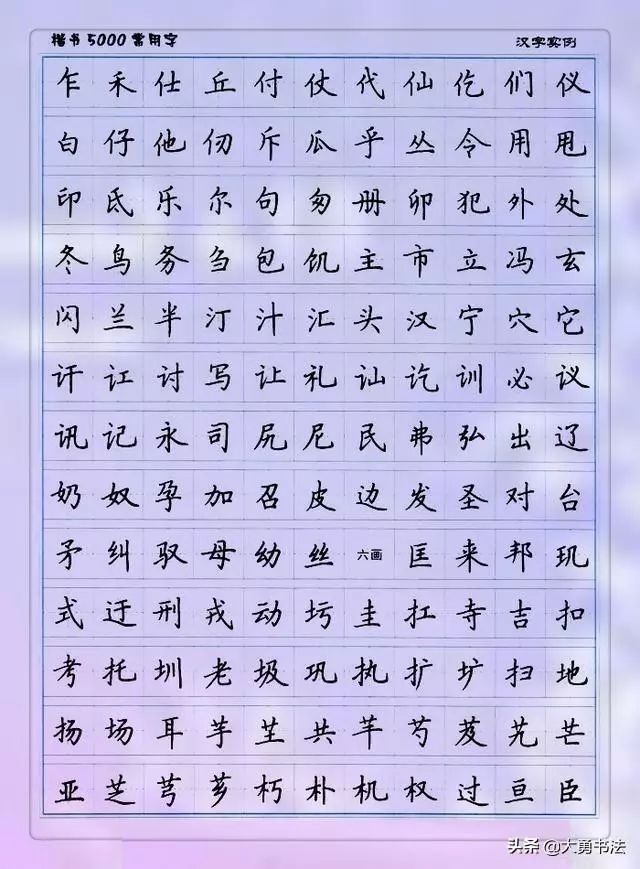 楷书5000常用字 汉字实例
乍 禾 仕 丘 付 仗 代 仙 仡 们 仪
白 仔 他 仞 斥 瓜 乎 丛 令 用 甩
印 氐 乐 尔 句 匆 册 卯 犯 外 处
冬 鸟 务 刍 包 饥 主 市 立 冯 玄
闪 兰 半 汀 汁 汇 头 汉 宁 穴 它
讦 讧 讨 写 让 礼 讪 讫 训 必 议
讯 记 永 司 尻 尼 民 弗 弘 出 辽
奶 奴 孕 加 召 皮 边 发 圣 对 台
矛 纠 驭 母 幼 丝 六画 匡 来 邦 玑
式 迂 刑 戎 动 圬 圭 扛 寺 吉 扣
考 托 圳 老 圾 巩 执 扩 圹 扫 地
扬 场 耳 芋 芏 共 芊 芍 芨 艽 芒
亚 芝 芎 芗 朽 朴 机 权 过 亘 臣
头条 @大勇书法